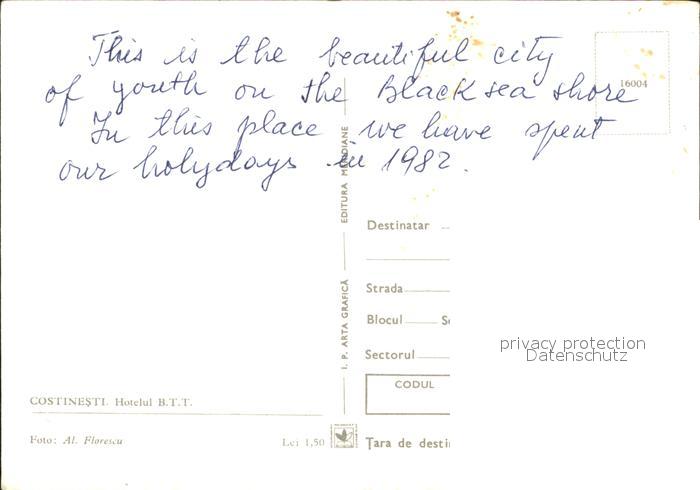 This is the beautiful city
of youth on the Black sea shore
In this place we have spent
our holydays in 1982.
16004
EDITURA MERIDIANE
I. P. ARTA GRAFICĂ
Destinatar
Strada
Blocul
Sectorul
CODUL
privacy protection
Datenschutz
COSTINEȘTI. Hotelul B.T.T.
Foto: Al. Florescu
Lei 1,50
Țara de desti